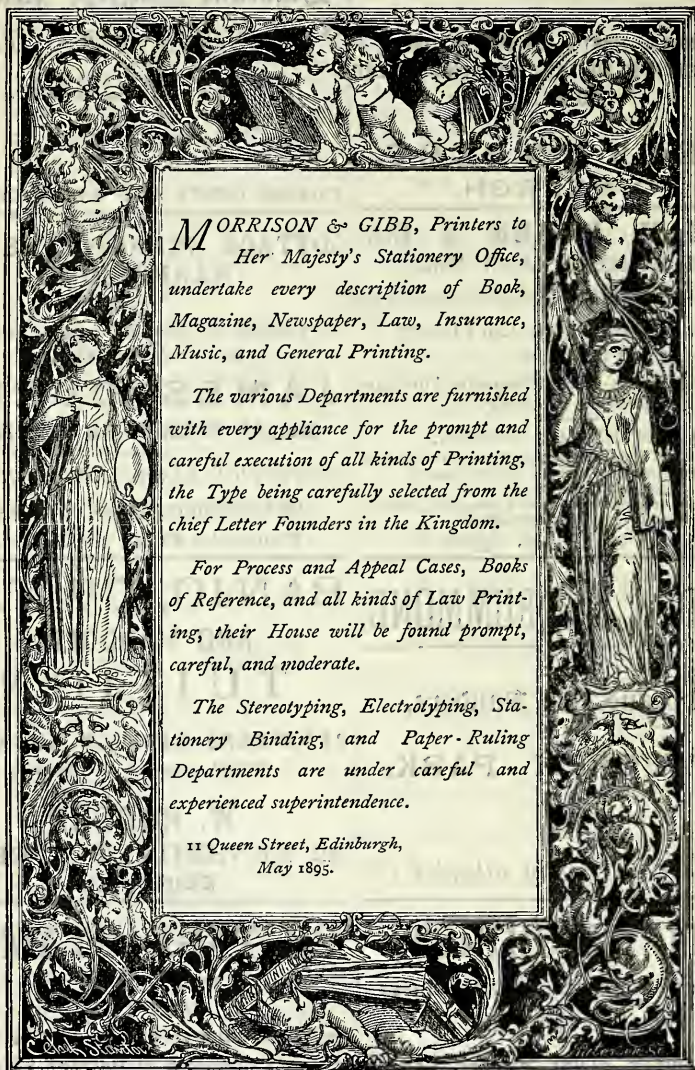 MORRISON & GIBB, Printers to
Her Majesty's Stationery Office,
undertake every description of Book,
Magazine, Newspaper, Law, Insurance,
Music, and General Printing.
The various Departments are furnished
with every appliance for the prompt and
careful execution of all kinds of Printing,
the Type being carefully selected from the
chief Letter Founders in the Kingdom.
For Process and Appeal Cases, Books
of Reference, and all kinds of Law Print-
ing, their House will be found prompt,
careful, and moderate.
The Stereotyping, Electrotyping, Sta-
tionery Binding, and Paper-Ruling
Departments are under careful and
experienced superintendence.
11 Queen Street, Edinburgh,
May 1895.